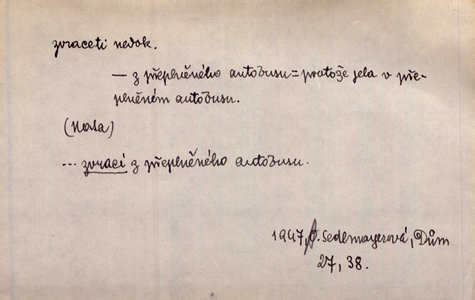 zvraceti nedok.
— z přeplněného autobusu = protože jela v pře-
plněném autobusu.
(Naťa)
... zvrací z přeplněného autobusu.
1947, O. Sedlmayerová, Dům
27, 38.